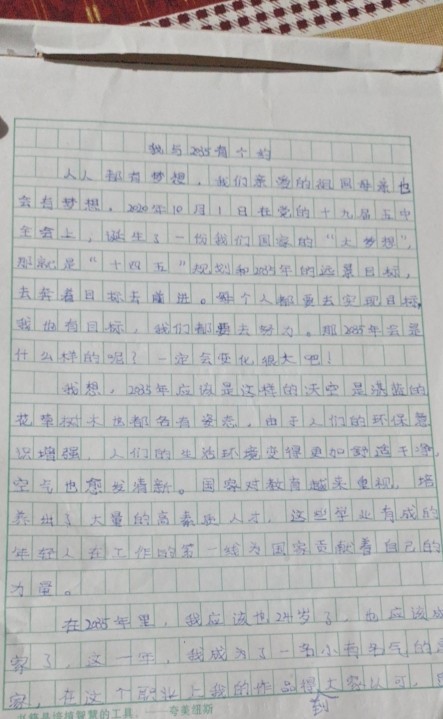 我与2035有个约
人人都有梦想，我们亲爱的祖国母亲也
会有梦想。2020年10月1日在党的十九届五中
全会上，诞生了一份我们国家的“大梦想”，
那就是“十四五”规划和2035年的远景目标，
去奔着目标去前进。每个人都要去实现目标，
我也有目标，我们都要去努力。那2035年会是
什么样的呢？一定会变化很大吧！
我想，2035年应该是这样的天空是湛蓝的
花草树木也都各有姿态，由于人们的环保意
识增强，人们的生活环境变得更加舒适干净，
空气也愈发清新。国家对教育越来重视，培
养出了大量的高素质人才，这些学业有成的
年轻人在工作的第一线为国家贡献着自己的
力量。
在2035年里，我应该也24岁了，也应该成
家了，这一年，我成为了一名小有名气的
家，在这个职业上我的作品得到大家认可，
书籍是培植智慧的工具。——夸美纽斯